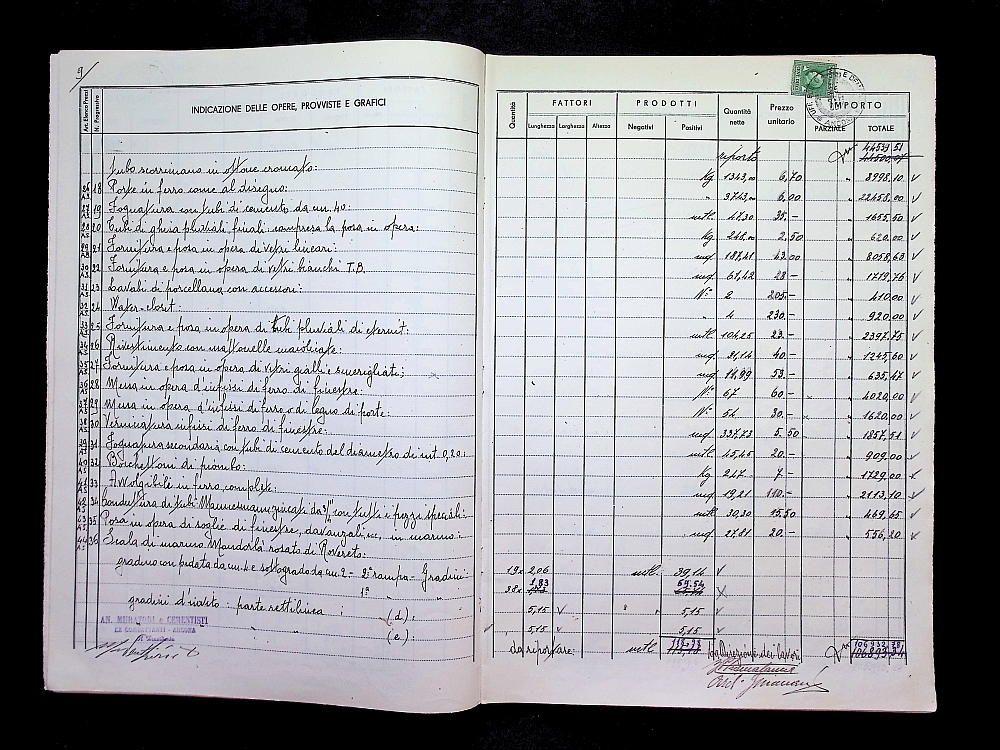 9
Art. Elenco Prezzi
N. Progressivo
INDICAZIONE DELLE OPERE, PROVVISTE E GRAFICI
tubo scorrimano in ottone cromato:
18 Porte in ferro come al disegno:
19 Fognatura con tubi di cemento da cm. 40:
20 Tubi di ghisa pluviali finali compresa la posa in opera:
21 Fornitura e posa in opera di vetri lineari:
22 Fornitura e posa in opera di vetri bianchi T.B.
23 Lavabi di porcellana con accessori:
24 Water-closet:
25 Fornitura e posa in opera di tubi pluviali di eternit:
26 Rivestimento con mattonelle maiolicate:
27 Fornitura e posa in opera di vetri gialli e smerigliati;
28 Messa in opera d'infissi di ferro di finestre:
29 Messa in opera d'infissi di ferro o di legno di porte:
30 Verniciatura infissi di ferro di finestre:
31 Fognatura secondaria con tubi di cemento del diametro di mt. 0,20:
32 Bocchettoni di piombo:
33 Avvolgibile in ferro complete:
34 Conduttura di tubi Mannesmann zincati da 3/4" con tutti i pezzi speciali:
35 Posa in opera di soglie di finestre, davanzali, ecc, in marmo:
36 Scala di marmo Mandorlà rosato di Rovereto:
gradino con pedata da cm. 4 e sottogrado da cm. 2 - 2ª rampa - Gradini:
1ª " "
gradini d'invito: parte rettilinea: (d):
(e):
AN. MURATORI e CEMENTISTI
EX COMBATTENTI - ANCONA
Quantità
FATTORI
Lunghezza Larghezza Altezza
PRODOTTI
Negativi Positivi
Quantità nette
Prezzo unitario
IMPORTO
PARZIALE TOTALE
riporto 44539,51
Kg 1343,00 6,70 " 8998,10
" 3743,00 6,00 " 22458,00
mtl. 47,30 35,- " 1655,50
Kg 248,00 2,50 " 620,00
mq 187,41 43,00 " 8058,63
mq 61,42 28 - " 1719,76
N° 2 205.- " 410,00
" 4 230.- " 920,00
mtl 104,25 23.- " 2397,75
mq 31,14 40.- " 1245,60
mq 11,99 53.- " 635,47
N° 67 60.- " 4020,00
N° 54 30.- " 1620,00
mq 337,73 5.50 " 1857,51
mtl 45,45 20.- " 909,00
Kg 247.- 7- " 1729,00
mq 19,21 110.- " 2113,10
mtl 30,30 15,50 " 469,65
mq 27,81 20.- " 556,20
19 x 2,06 mtl. 39,14
38 x 1,83 69.54
5,15 " " 5,15
5,15 5,15
da riportare: mtl. La Direzione dei lavori